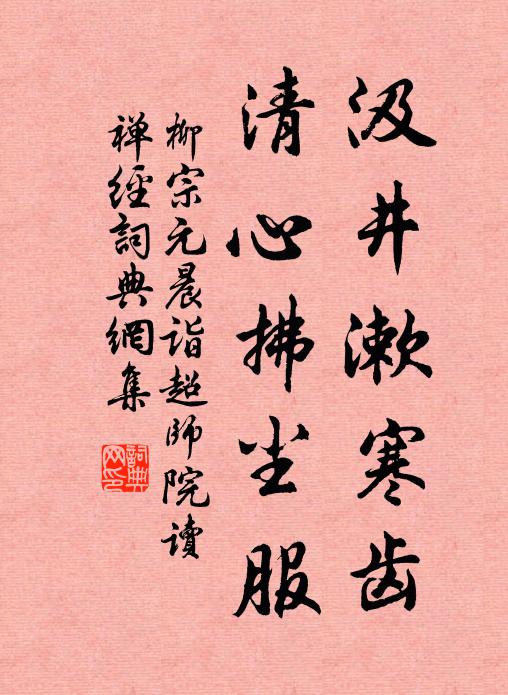 汲井漱寒齿
清心拂尘服
柳宗元晨诣超师院读
禅经词典網集
詞典網印